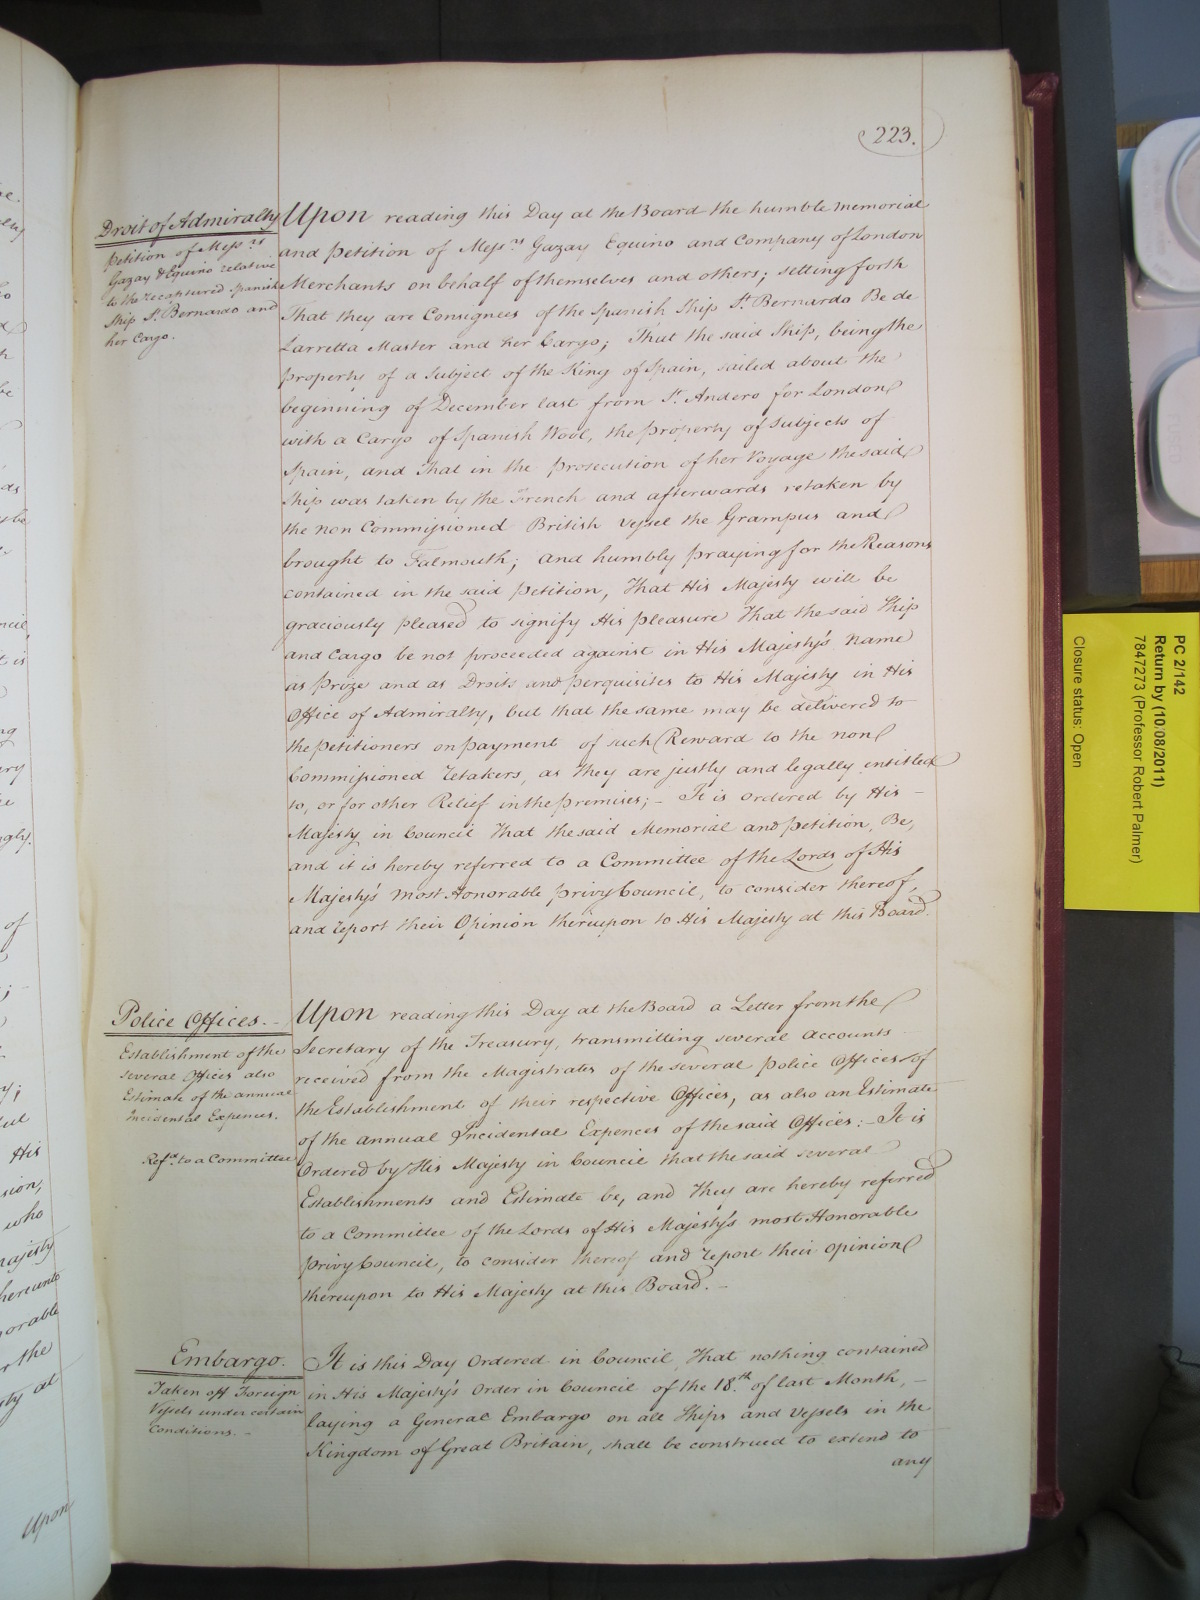 223.
Droit of Admiralty
Petition of Mess.rs
Gazay & Equino relative
to the recaptured Spanish
Ship St. Bernardo and
her Cargo.
Upon reading this Day at the Board the humble Memorial
and Petition of Mess.rs Gazay Equino and Company of London
Merchants on behalf of themselves and others; setting forth
That they are Consignees of the Spanish Ship St. Bernardo Be de
Larretta Master and her Cargo; That the said Ship, being the
property of a Subject of the King of Spain, sailed about the
beginning of December last from St. Andero for London
with a Cargo of Spanish Wool, the property of Subjects of
Spain, and that in the prosecution of her Voyage the said
Ship was taken by the French and afterwards retaken by
the non Commissioned British Vessel the Grampus and
brought to Falmouth; and humbly praying for the Reasons
contained in the said Petition, That His Majesty will be
graciously pleased to signify His pleasure That the said Ship
and Cargo be not proceeded against in His Majesty's Name
as Prize and as Droits and perquisites to His Majesty in His
Office of Admiralty, but that the same may be delivered to
the petitioners on payment of such Reward to the non
Commissioned retakers, as they are justly and legally entitled
to, or for other Relief in the premises; - It is ordered by His -
Majesty in Council That the said Memorial and petition, Be,
and it is hereby referred to a Committee of the Lords of His
Majesty's most Honorable privy Council, to consider thereof,
and report their Opinion thereupon to His Majesty at this Board.
Police Offices. -
Establishment of the
several Offices also
Estimate of the annual
Incidental Expences.
Ref.d to a Committee
Upon reading this Day at the Board a Letter from the
Secretary of the Treasury, transmitting several Accounts
received from the Magistrates of the several Police Offices of
the Establishment of their respective Offices, as also an Estimate
of the annual Incidental Expences of the said Offices: - It is
Ordered by His Majesty in Council that the said several
Establishments and Estimate be, and they are hereby referred
to a Committee of the Lords of His Majesty's most Honorable
privy Council, to consider thereof and report their opinion
thereupon to His Majesty at this Board. -
Embargo.
Taken off Foreign
Vessels under certain
Conditions. -
It is this Day Ordered in Council That nothing contained
in His Majesty's Order in Council of the 18.th of last Month, -
laying a General Embargo on all Ships and Vessels in the
Kingdom of Great Britain, shall be construed to extend to
any
PC 2/142
Return by (10/08/2011)
7847273 (Professor Robert Palmer)
Closure status: Open
His
who
Majesty
hereunto
the
at
Upon